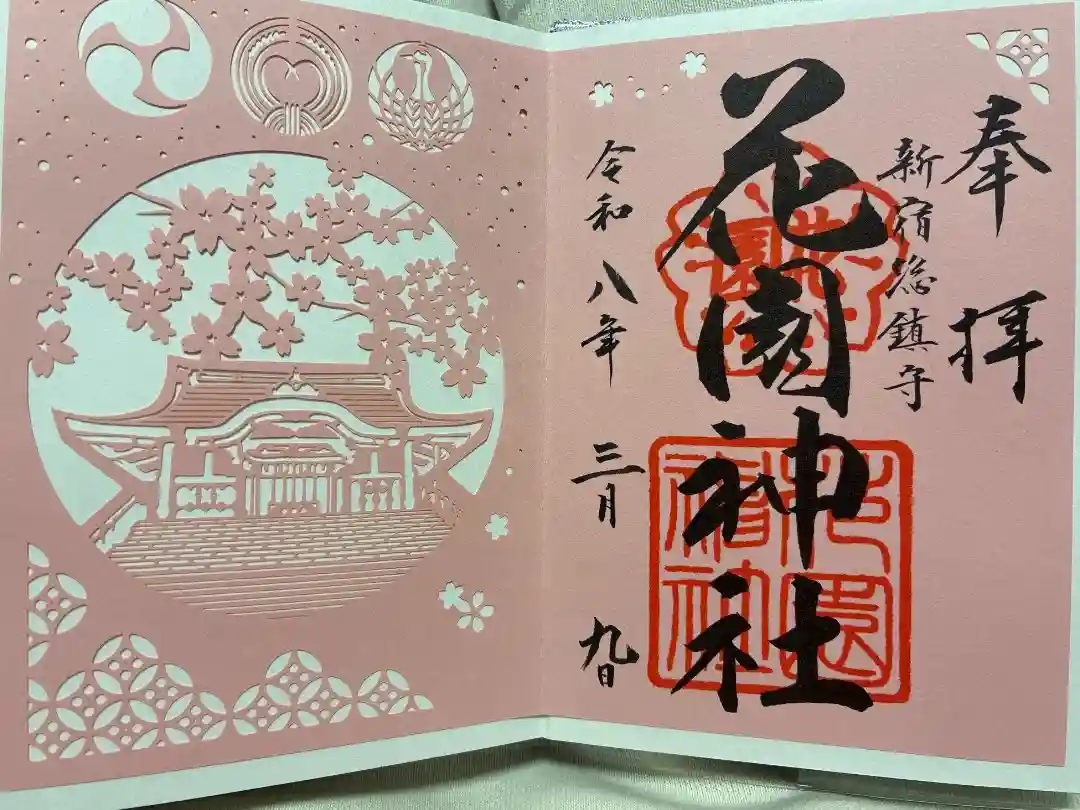 奉拝
新宿総鎮守
花園神社
令和八年三月九日
花園
花園神社